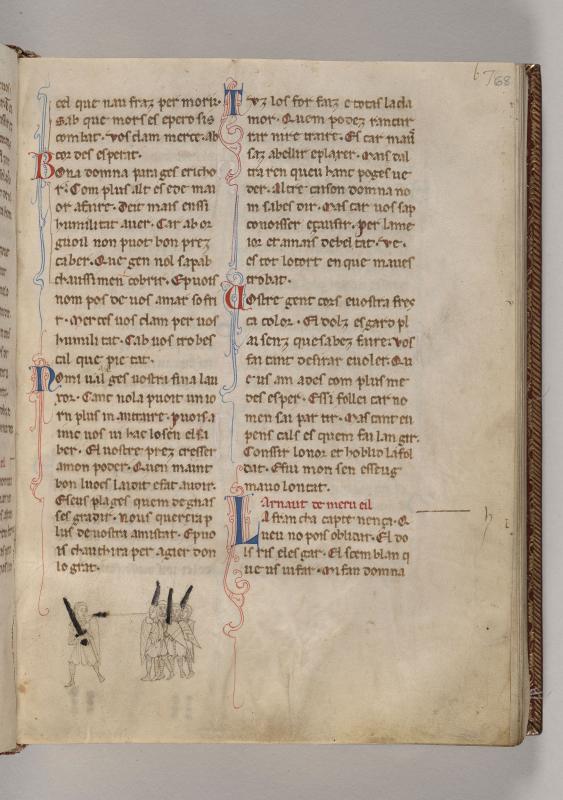 768
cel que nau fraz per morir.
Sab que mors es epero sis
combat. vos clam merce. ab
cor des esperat.
Bona domna pura ges ericho
r. Com plus alt es ede mai
or afaire. Deu mais enssi
humilitat auer. Car ab or
guoil non puot bon prez
caber. Que gen nol sapab
chausimen cobrir. Epuois
nom pos de uos amar sofri
r. Merces uos clam per uos
humilitat. Cab uos trobes
cal que pietat.
Nomi ual ges uostra fina lau
zor. Cant nola puoit un io
rn plus in autaire. puois. a
uos ui hac lo sen el sa
ber. El uostre prez cresser
amon poder. Quen maint
bon luoes laidit efat audir.
E seus plages quem degnas
ses gradir. nous querria p
lus de uostra amistat. Epuo
is chauthira per agier don
lo grat.
Toz los for faiz e totas la cla
mor. Quem podez rancur
rar ni retraire. Es car man
saz abellir eplazer. Mais dal
tra ren queu hanc poges ue
der. Altre caison domna no
m sabes dir. Mas car uos sap
conoisser egausir. per lame
lor et amais debeltat. Ve.
es tot lo tort en que maues
trobat.
Vostre gent cors euostra fres
ca color. El dolz esgard pl
aisenz que sabez faire. vos
fai tant desirar euoler. Qu
eus am ades com plus me
des esper. Essi follei car no
men sai partir. Mas cant en
pens cals es quem fai lan gir.
Conssir lonor et hoblid la fol
dat. Efui mon sen esseug
ma uolontat.
Larnaut de merueil
La francha captenenza. Q
ueu no posc oblidar. El do
lz ris el esgar. El semblan q
ue us ui far. Mi fan domna